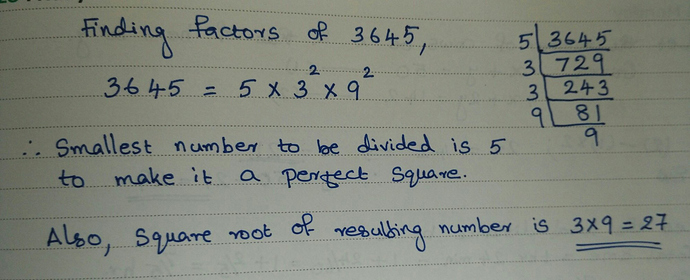 Finding factors of 3645,
3645 = 5 x 3² x 9²
5 | 3645
3 | 729
3 | 243
9 | 81
9
∴ Smallest number to be divided is 5
to make it a perfect square.
Also, Square root of resulting number is 3x9 = 27